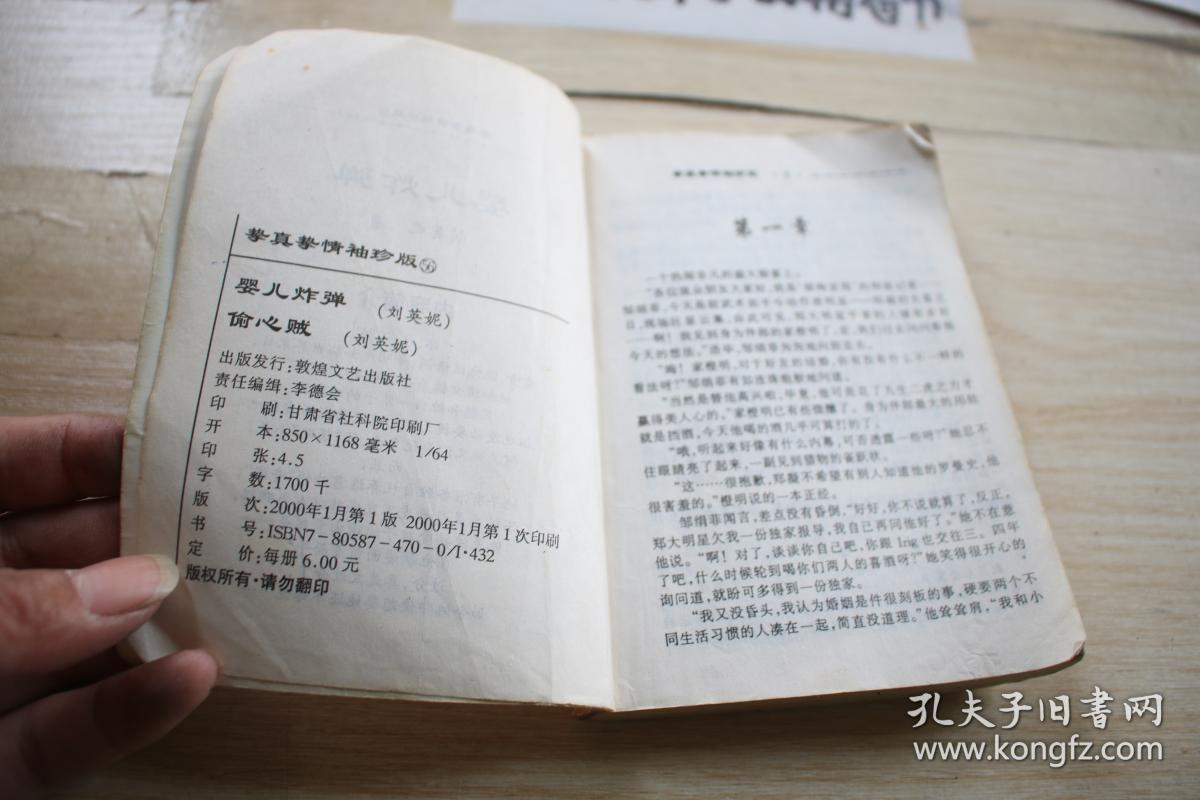 挚真挚情袖珍版㊶
婴儿炸弹
(刘英妮)
偷心贼
(刘英妮)
出版发行:敦煌文艺出版社
责任编缉:李德会
印 刷:甘肃省社科院印刷厂
开 本:850×1168毫米 1/64
印 张:4.5
字 数:1700千
版 次:2000年1月第1版 2000年1月第1次印刷
书 号:ISBN7-80587-470-0/I·432
定 价:每册6.00元
版权所有·请勿翻印
第一章
一个热闹非凡的盛大婚宴上。
今天的想法。
看法呀?”邹绢菲有如连珠炮般地问道。
“当然是替他高兴啦,毕竟,他可是花了九牛二虎之力才
赢得美人心的。”家橙明已有些微醺了。身为伴郎最大的用処
就是挡酒,今天他喝的酒几乎可算打的了。
“哦,听起来好像有什么内幕,可否透露一些呀?”她忍不
住眼睛亮了起来,一副见到猎物的雀跃状。
“这……很抱歉,郑凝不希望有别人知道他的罗曼史,他
很害羞的。”橙明说的一本正经。
邹绢菲闻言,差点没有昏倒,“好好,你不说就算了,反正。
郑大明星欠我一份独家报导,我自己再问他好了。”她不在意
他说。“啊!对了,谈谈你自己吧,你跟lng也交往三。四年
了吧,什么时候轮到喝你们两人的喜酒呀?”她笑得很开心的
询问道,就盼可多得到一份独家。
“我又没昏头,我认为婚姻是件很刻板的事,硬要两个不
同生活习惯的人凑在一起,简直没道理。”他耸耸肩,“我和小
孔夫子旧书网
www.kongfz.com